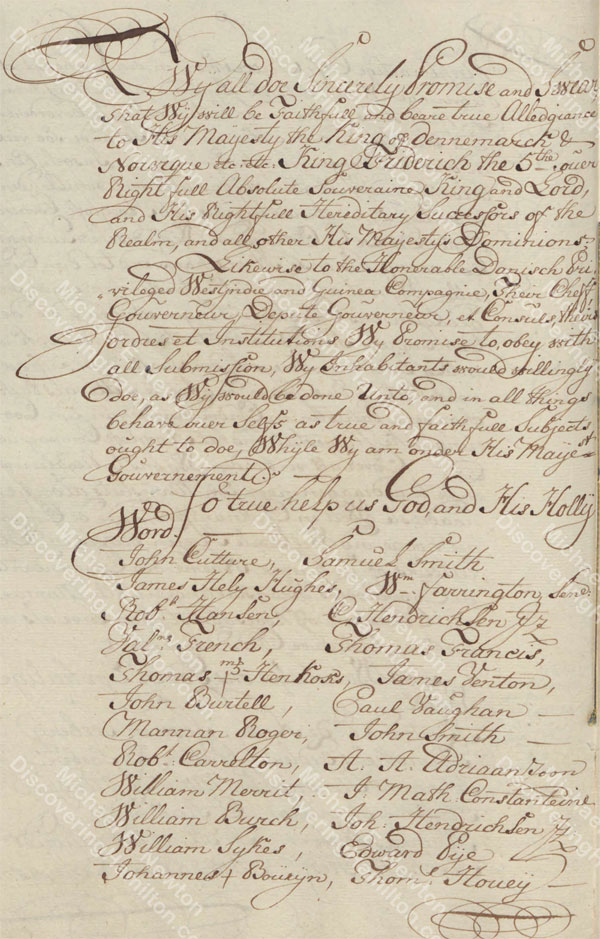 Wÿ all doe Sincerely Promise and Swear,
that Wÿ will be Faithfull and beare true Alledgiance
to His Mayesty the King of Dennemarck &
Norweque etc. etc. King Friderich the 5the, ouer
Right full Absolute Souveraine King and Lord,
and His Rightfull Hereditary Successors of the
Realm, and all other His Mayestys Dominions;
Likewise to the Honerable Danisch Pri
vileged Westjndie and Guinea Compagnie, Their Cheff
Gouverneur, Depute Gouverneur, et Consuls, theirs
ordres et Institutions Wÿ Promise to obey with
all Submission, Wÿ Inhabitants would willingly
doe, as Wÿ would be done Unto, and in all things
behave ouer Selfs as true and faithfull Subjects,
ought to doe, Whyle Wÿ am onder His Mayest
Gouvernement.
So true help us God, and His Hollÿ
Word.
John Cutture, Samuel Smith
James Hely Hughes, Wm Farrington, Senr.
Robt Hansen, C Hendrichsen Jz
Valne French, Thomas Francis,
Thomas + Henkoks, James Venton,
John Burtell, Paul Vaughan
Mannan Roger, John Smith
Robt. Carrolton, A. A. Adriaanzoon
William Merrit, J. Math. Constanteine
William Burch, Joh. Hendrichsen Jz
William Sykes, Edward Pije
Johannes + Bouyn, Thoms. Houey